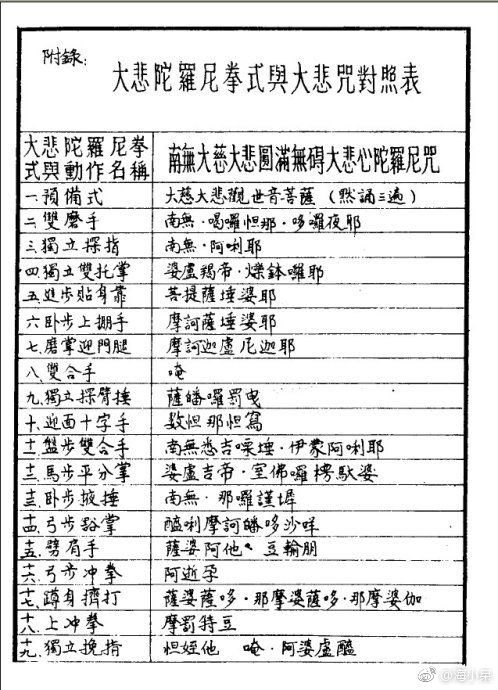 附錄:
大悲陀羅尼拳式與大悲咒對照表
大悲陀羅尼拳式與動作名稱 南無大慈大悲圓滿無碍大悲心陀羅尼咒
一.預備式 大慈大悲觀世音菩薩（默誦三遍）
二.雙磨手 南無·喝囉怛那·哆囉夜耶
三.獨立探指 南無·阿唎耶
四.獨立雙托掌 婆盧羯帝·爍鉢囉耶
五.進步貼身靠 菩提薩埵婆耶
六.卧步上掤手 摩訶薩埵婆耶
七.磨掌迎門腿 摩訶迦盧尼迦耶
八.雙合手 唵
九.獨立探臂捶 薩皤囉罰曳
十.迎面十字手 数怛那怛寫
十一.盤步雙合手 南無悉吉㗚埵·伊蒙阿唎耶
十二.馬步平分掌 婆盧吉帝·室佛囉楞馱婆
十三.卧步掖捶 南無·那囉謹墀
十四.弓步谿掌 醯唎摩訶皤哆沙咩
十五.劈肩手 薩婆阿他、豆輸朋
十六.弓步冲拳 阿逝孕
十七.蹲身擠打 薩婆薩哆·那摩婆薩哆·那摩婆伽
十八.上冲拳 摩罰特豆
十九.獨立挽指 怛姪他 唵·阿婆盧醯
@海小宗